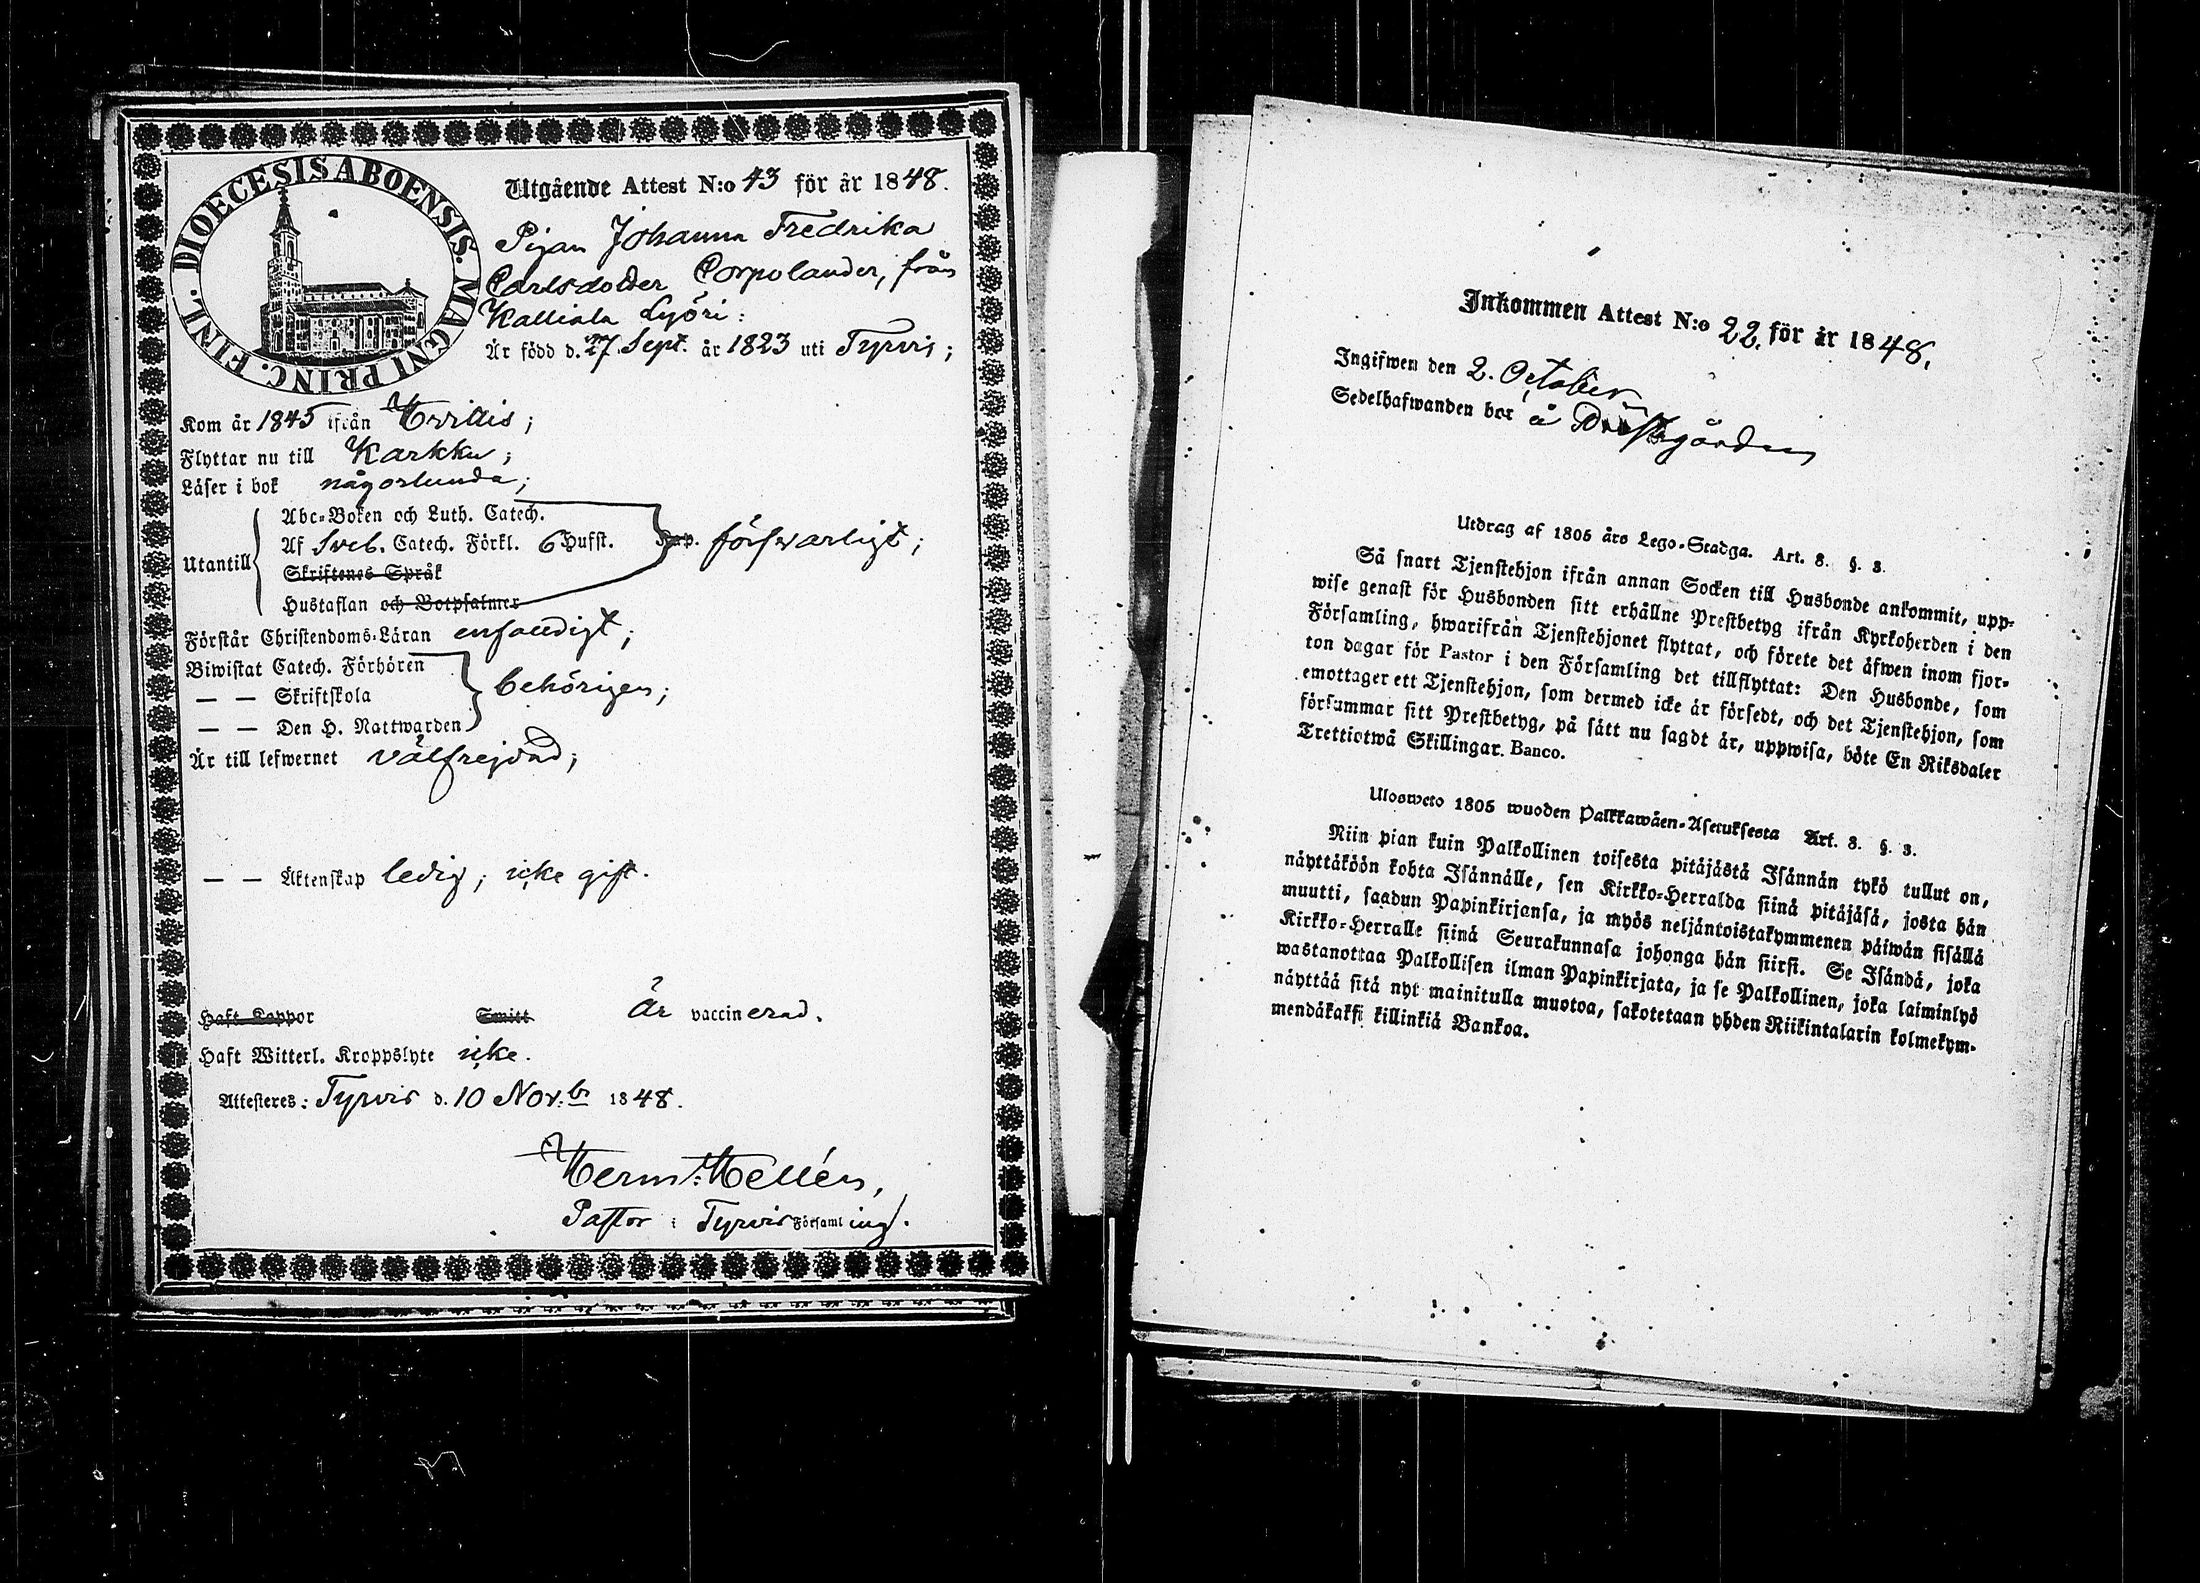 DIOECESIS ABOENSIS. MAGNI PRINC. FINL.
Utgående Attest N:o 43 för år 1848.
Pigan Johanna Fredrika
Carlsdotter Corpolander, från
Kalliala Lyöri:
Är född d. 27 Sept. år 1823 uti Tyrvis;
Kom år 1845 ifrån
Flyttar nu till Karkku;
Läser i bok någorlunda;
Utantill
Abc-Boken och Luth. Catech.
Af Sveb. Catech. Förkl. 6 Hufst. Kap. försvarligt;
Skriftenes Språk
Hustaflan och Botpsalmer
Förstår Christendoms-Läran enfaldigt;
Biwistat Catech. Förhören
— — Skriftskola behörigen;
— — Den H. Nattwarden
Är till lefwernet välfrejdad;
— — Äktenskap ledig; icke gift.
Haft Koppor Smitt Är vaccinerad.
Haft Witterl. Kroppslyte icke.
Attesteres: Tyrvis d. 10 Nov:br 1848.
Herm: Hellén,
Pastor i Tyrvis Församling.
Inkommen Attest N:o 22. för år 1848.
Ingifwen den 2. October
Sedelhafwanden bor å Prestgården
Utdrag af 1805 års Lego-Stadga. Art. 8. §. 3.
Så snart Tjenstehjon ifrån annan Socken till Husbonde ankommit, upp-
wise genast för Husbonden sitt erhållne Prestbetyg ifrån Kyrkoherden i den
Församling, hwarifrån Tjenstehjonet flyttat, och förete det äfwen inom fjor-
ton dagar för Pastor i den Församling det tillflyttat: Den Husbonde, som
emottager ett Tjenstehjon, som dermed icke är försedt, och det Tjenstehjon, som
försummar sitt Prestbetyg, på sätt nu sagdt är, uppwisa, böte En Riksdaler
Trettiotwå Skillingar Banco.
Ulosweto 1805 wuoden Palkkawäen-Asetuksesta Art. 8. §. 3.
Niin pian kuin Palkollinen toisesta pitäjästä Isännän tykö tullut on,
näyttäköön kohta Isännälle, sen Kirkko-Herralda siinä pitäjäsä, josta hän
muutti, saadun Papinkirjansa, ja myös neljäntoistakymmenen päiwän sisällä
Kirkko-Herralle siinä Seurakunnasa johonga hän siirsi. Se Isändä, joka
wastanottaa Palkollisen ilman Papinkirjata, ja se Palkollinen, joka laiminlyö
näyttää sitä nyt mainitulla muotoa, sakotetaan yhden Riikintalarin kolmekym-
mendäkaksi killinkiä Bankoa.